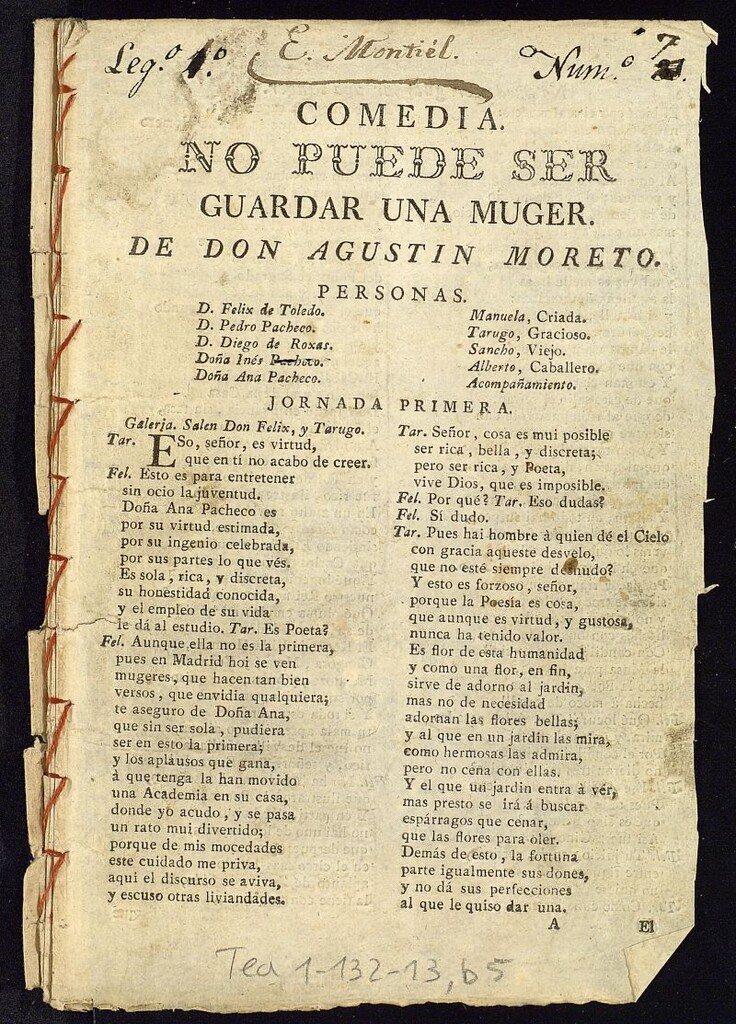 Leg.º 1.º
E. Montiél.
Num.º 7
COMEDIA.
NO PUEDE SER
GUARDAR UNA MUGER.
DE DON AGUSTIN MORETO.
PERSONAS.
D. Felix de Toledo.
D. Pedro Pacheco.
D. Diego de Roxas.
Doña Inés Pacheco.
Doña Ana Pacheco.
Manuela, Criada.
Tarugo, Gracioso.
Sancho, Viejo.
Alberto, Caballero.
Acompañamiento.
JORNADA PRIMERA.
Galeria. Salen Don Felix, y Tarugo.
Tar. ESo, señor, es virtud,
que en tí no acabo de creer.
Fel. Esto es para entretener
sin ocio la juventud.
Doña Ana Pacheco es
por su virtud estimada,
por su ingenio celebrada,
por sus partes lo que vés.
Es sola, rica, y discreta,
su honestidad conocida,
y el empleo de su vida
le dá al estudio. Tar. Es Poeta?
Fel. Aunque ella no es la primera,
pues en Madrid hoi se ven
mugeres, que hacen tan bien
versos, que envidia qualquiera;
te aseguro de Doña Ana,
que sin ser sola, pudiera
ser en esto la primera;
y los aplausos que gana,
à que tenga la han movido
una Academia en su casa,
donde yo acudo, y se pasa
un rato mui divertido;
porque de mis mocedades
este cuidado me priva,
aqui el discurso se aviva,
y escuso otras liviandades.
Tar. Señor, cosa es mui posible
ser rica, bella, y discreta;
pero ser rica, y Poeta,
vive Dios, que es imposible.
Fel. Por qué? Tar. Eso dudas?
Fel. Sí dudo.
Tar. Pues hai hombre à quien dé el Cielo
con gracia aqueste desvelo,
que no esté siempre desnudo?
Y esto es forzoso, señor,
porque la Poesía es cosa,
que aunque es virtud, y gustosa,
nunca ha tenido valor.
Es flor de esta humanidad
y como una flor, en fin,
sirve de adorno al jardin,
mas no de necesidad
adornan las flores bellas;
y al que en un jardin las mira,
como hermosas las admira,
pero no cena con ellas.
Y el que un jardin entra à vér,
mas presto se irá á buscar
espárragos que cenar,
que las flores para oler.
Demás de esto, la fortuna
parte igualmente sus dones,
y no dá sus perfecciones
al que le quiso dar una.
A
El
Tea 1-132-13, b5